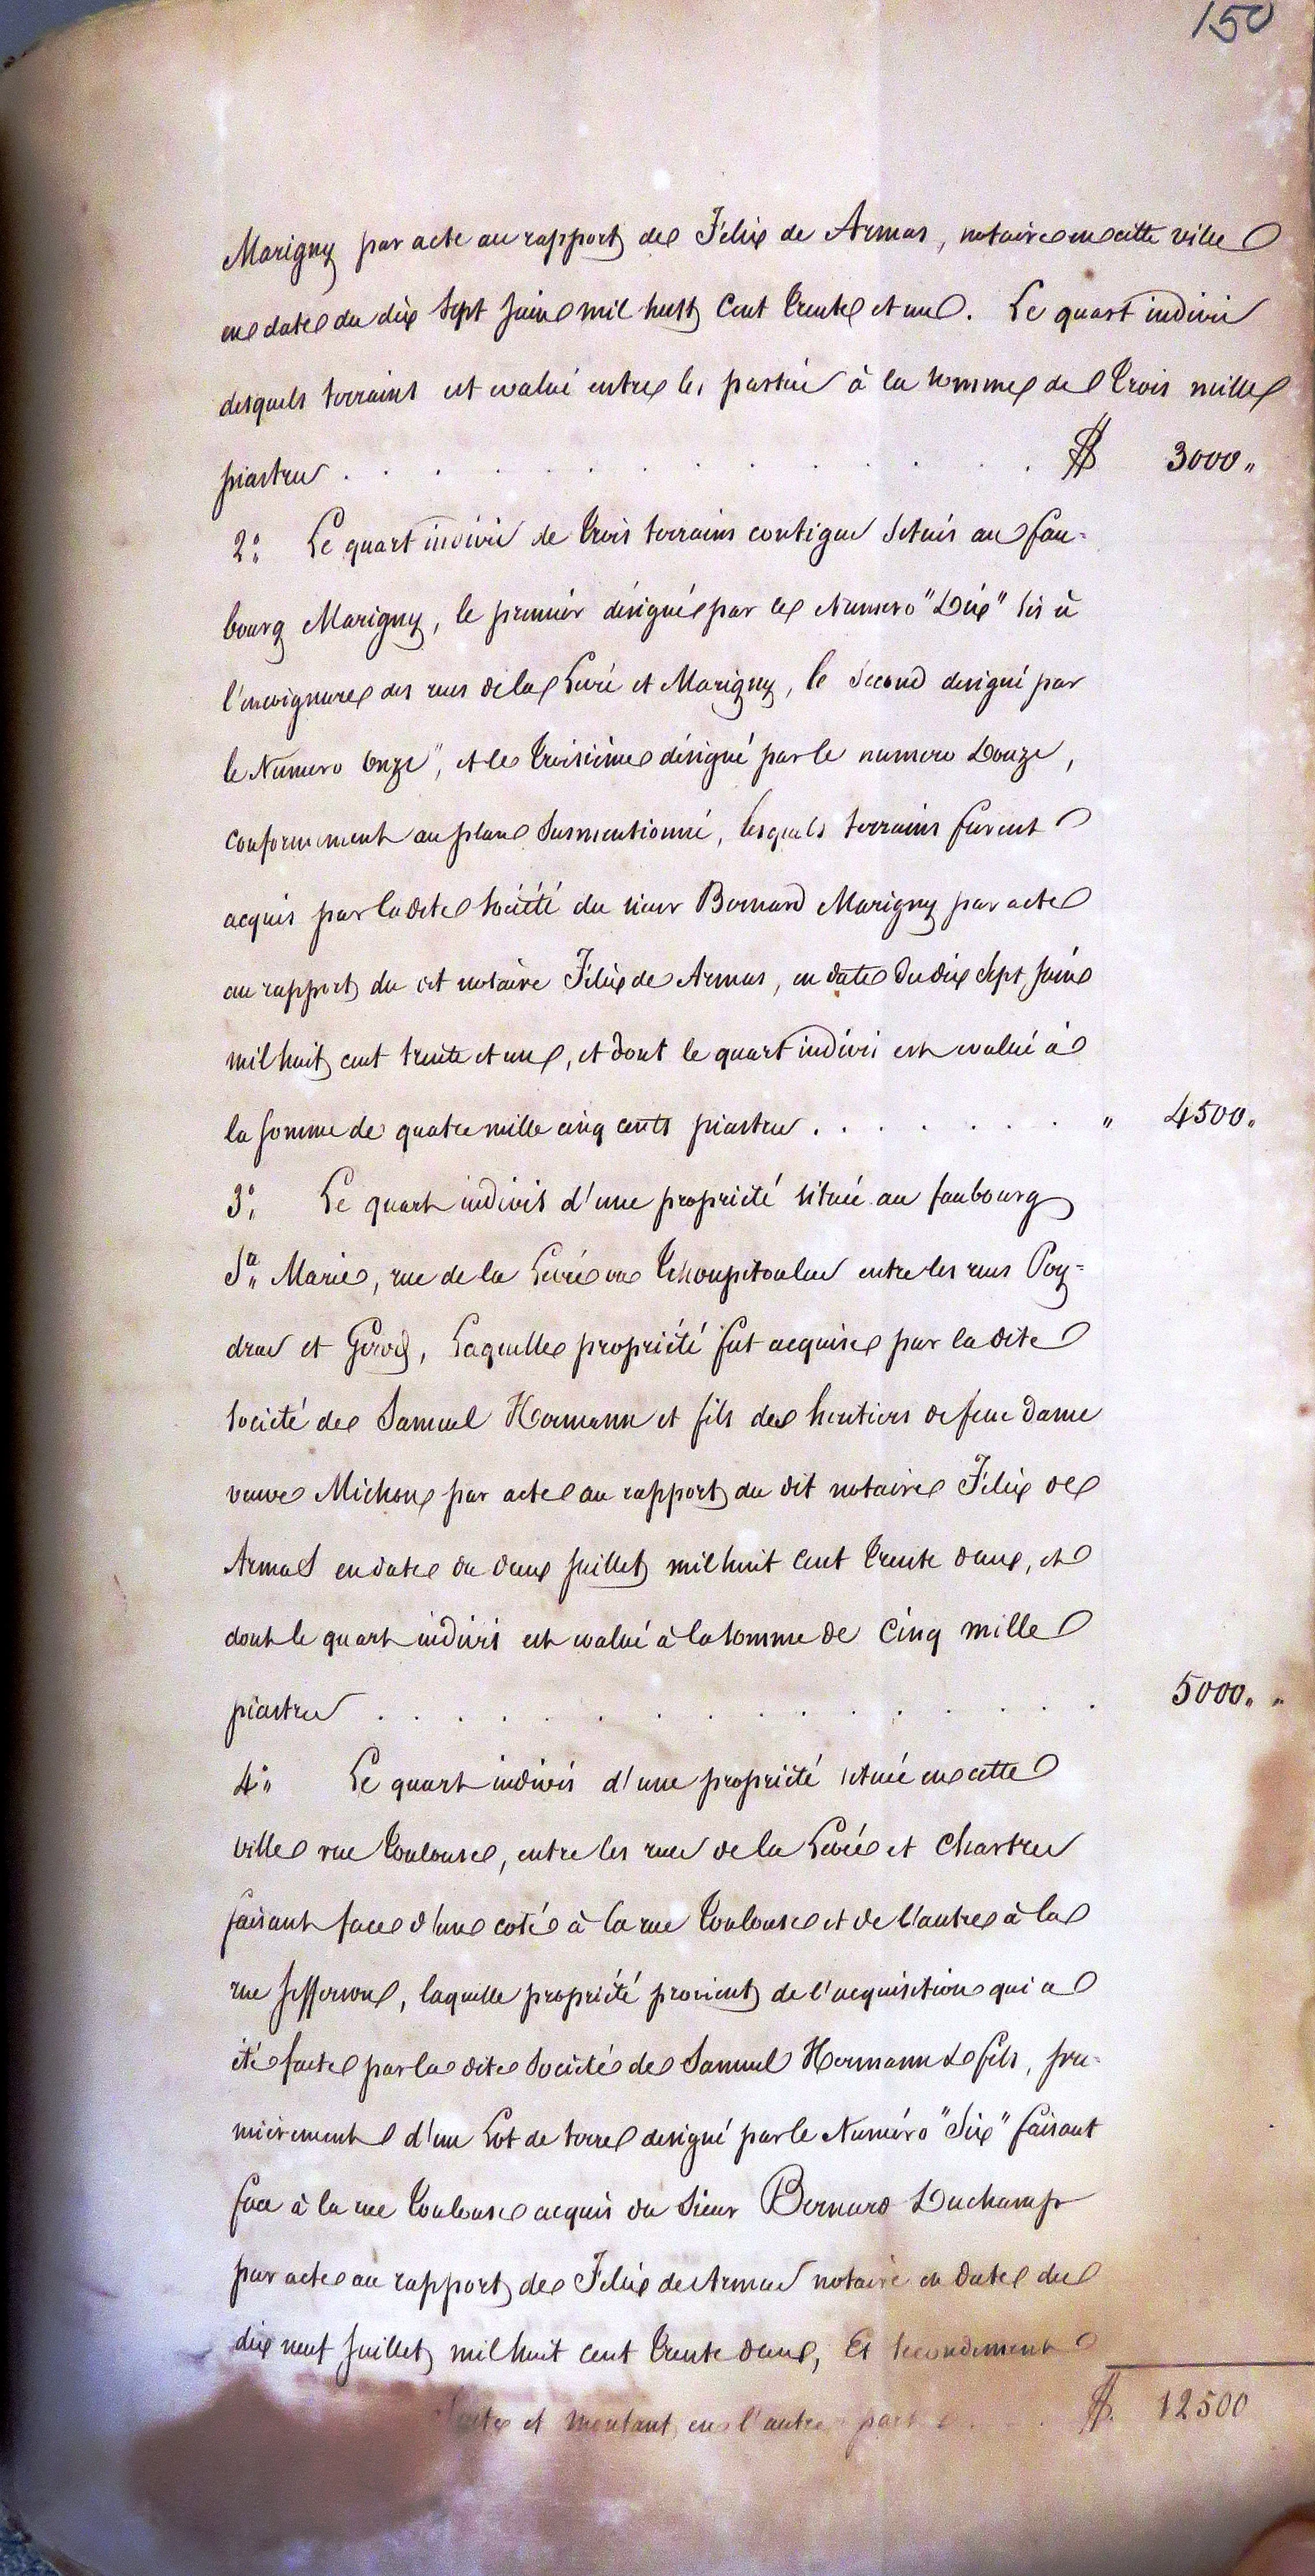 150
Marigny par acte au rapport de Félix de Armas, notaire en cette ville
en date du dix sept Juin mil huit Cent trente et un. Le quart indivis
desquels terrains est evalué entre les parties à la somme de trois mille
piastres . . . . . . . . . . $ 3000 "
2° Le quart indivis de trois terrains contigus situés au fau=
bourg Marigny, le premier désigné par le Numero "Dix" sis à
l'encoignure des rues de la Levée et Marigny, le second designé par
le Numero Onze", et le troisième désigné par le numero Douze,
conformement au plan Susmentionné, lesquels terrains furent
acquis par la dite Société du sieur Bernard Marigny par acte
au rapport du dit notaire Félix de Armas, en date du dix sept Juin
mil huit cent trente et un, et dont le quart indivis est evalué à
la somme de quatre mille cinq cents piastres . . . . . . . " 4500 "
3° Le quart indivis d'une propriété située au faubourg
Ste Marie, rue de la Levée ou Tchoupitoulas entre les rues Poy=
dras et Girod, Laquelle propriété fut acquise par la dite
Société de Samuel Hermann et fils des heritiers de feue dame
veuve Michon par acte au rapport du dit notaire Félix de
Armas en date du deux Juillet mil huit Cent trente deux, et
dont le quart indivis est evalué à la somme de Cinq mille
piastres . . . . . . . . . . . . . 5000 " "
4° Le quart indivis d'une propriété située en cette
ville rue Toulouse, entre les rues de la Levée et Chartres
faisant face d'un coté à la rue Toulouse et de l'autre à la
rue Jefferson, laquelle propriété provient de l'acquisition qui a
été faite par la dite Société de Samuel Hermann & fils, pre=
mièrement d'un Lot de terre designé par le Numéro "Six" faisant
face à la rue Toulouse acquis du Sieur Bernard Duchamp
par acte au rapport de Félix de Armas notaire en date du
dix neuf Juillet mil huit cent trente deux, Et secondement
et montant en l'autre part . . . $. 12500